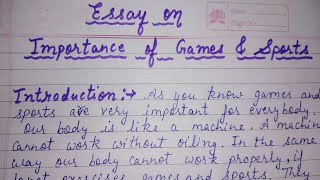 Essay on
Importance of Games & Sports
Introduction:→ As you know games and
sports are very important for everybody.
Our body is like a machine. A machine
cannot work without oiling. In the same
way our body cannot work properly, if
not exercised games and sports. They